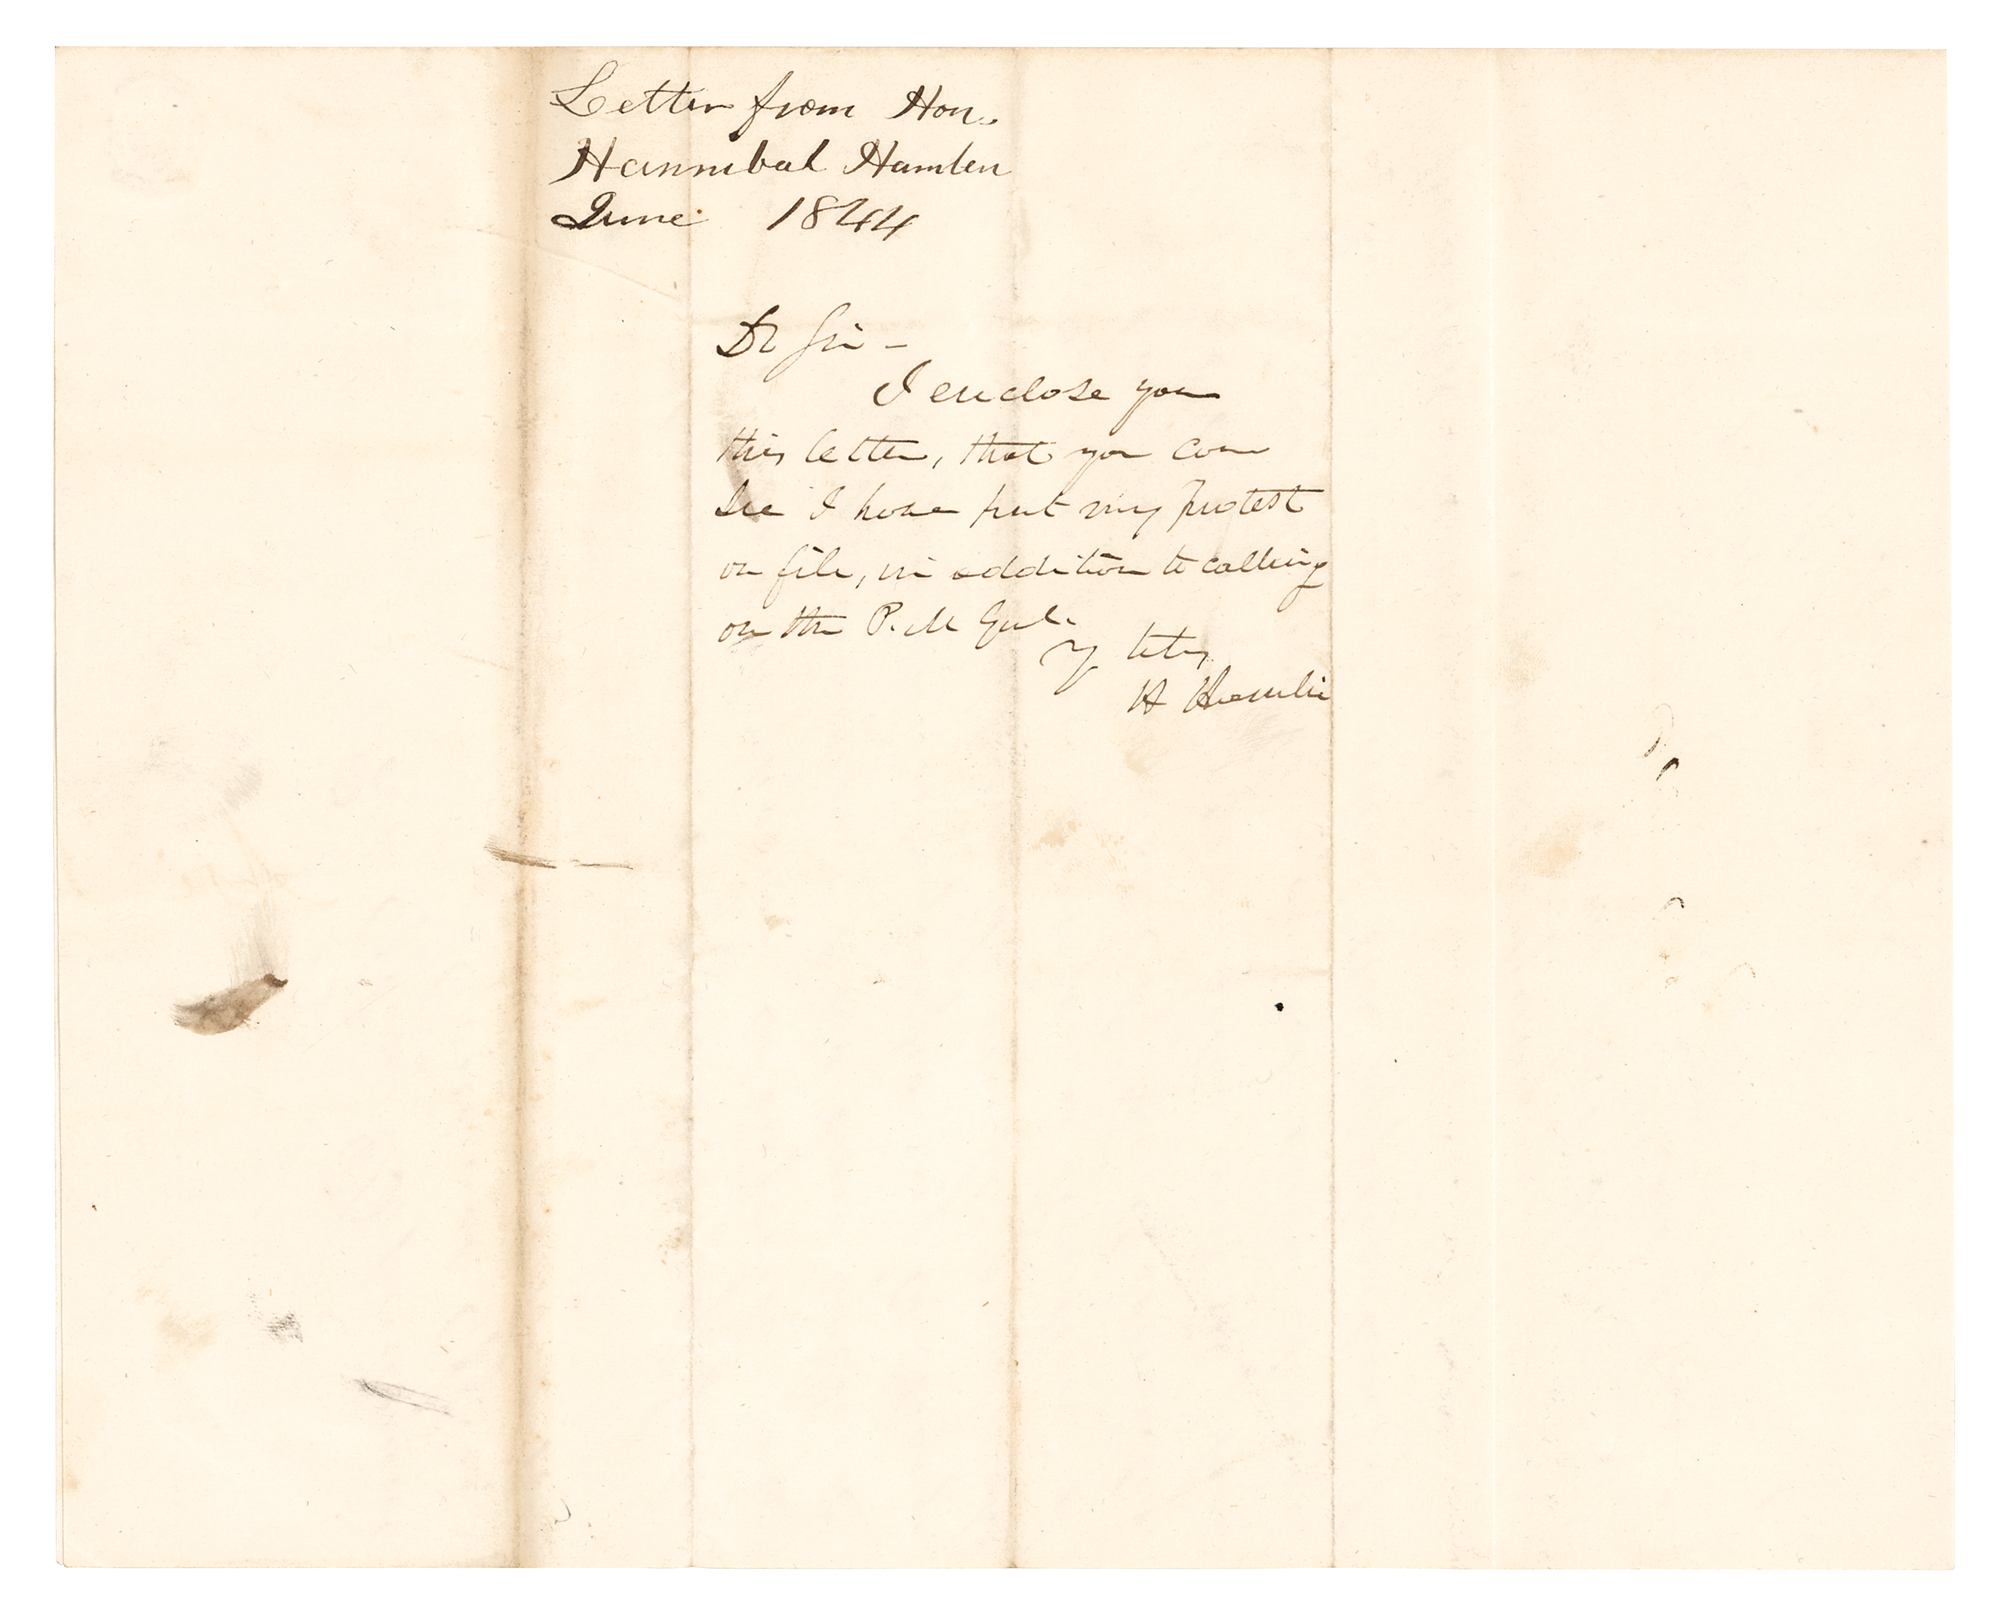 Letter from Hon.
Hannibal Hamlen
June 1844
Dr Sir –
I enclose you
this letter, that you can
see I have put my protest
on file, in addition to calling
on the P. M Genl.
H Hamlin